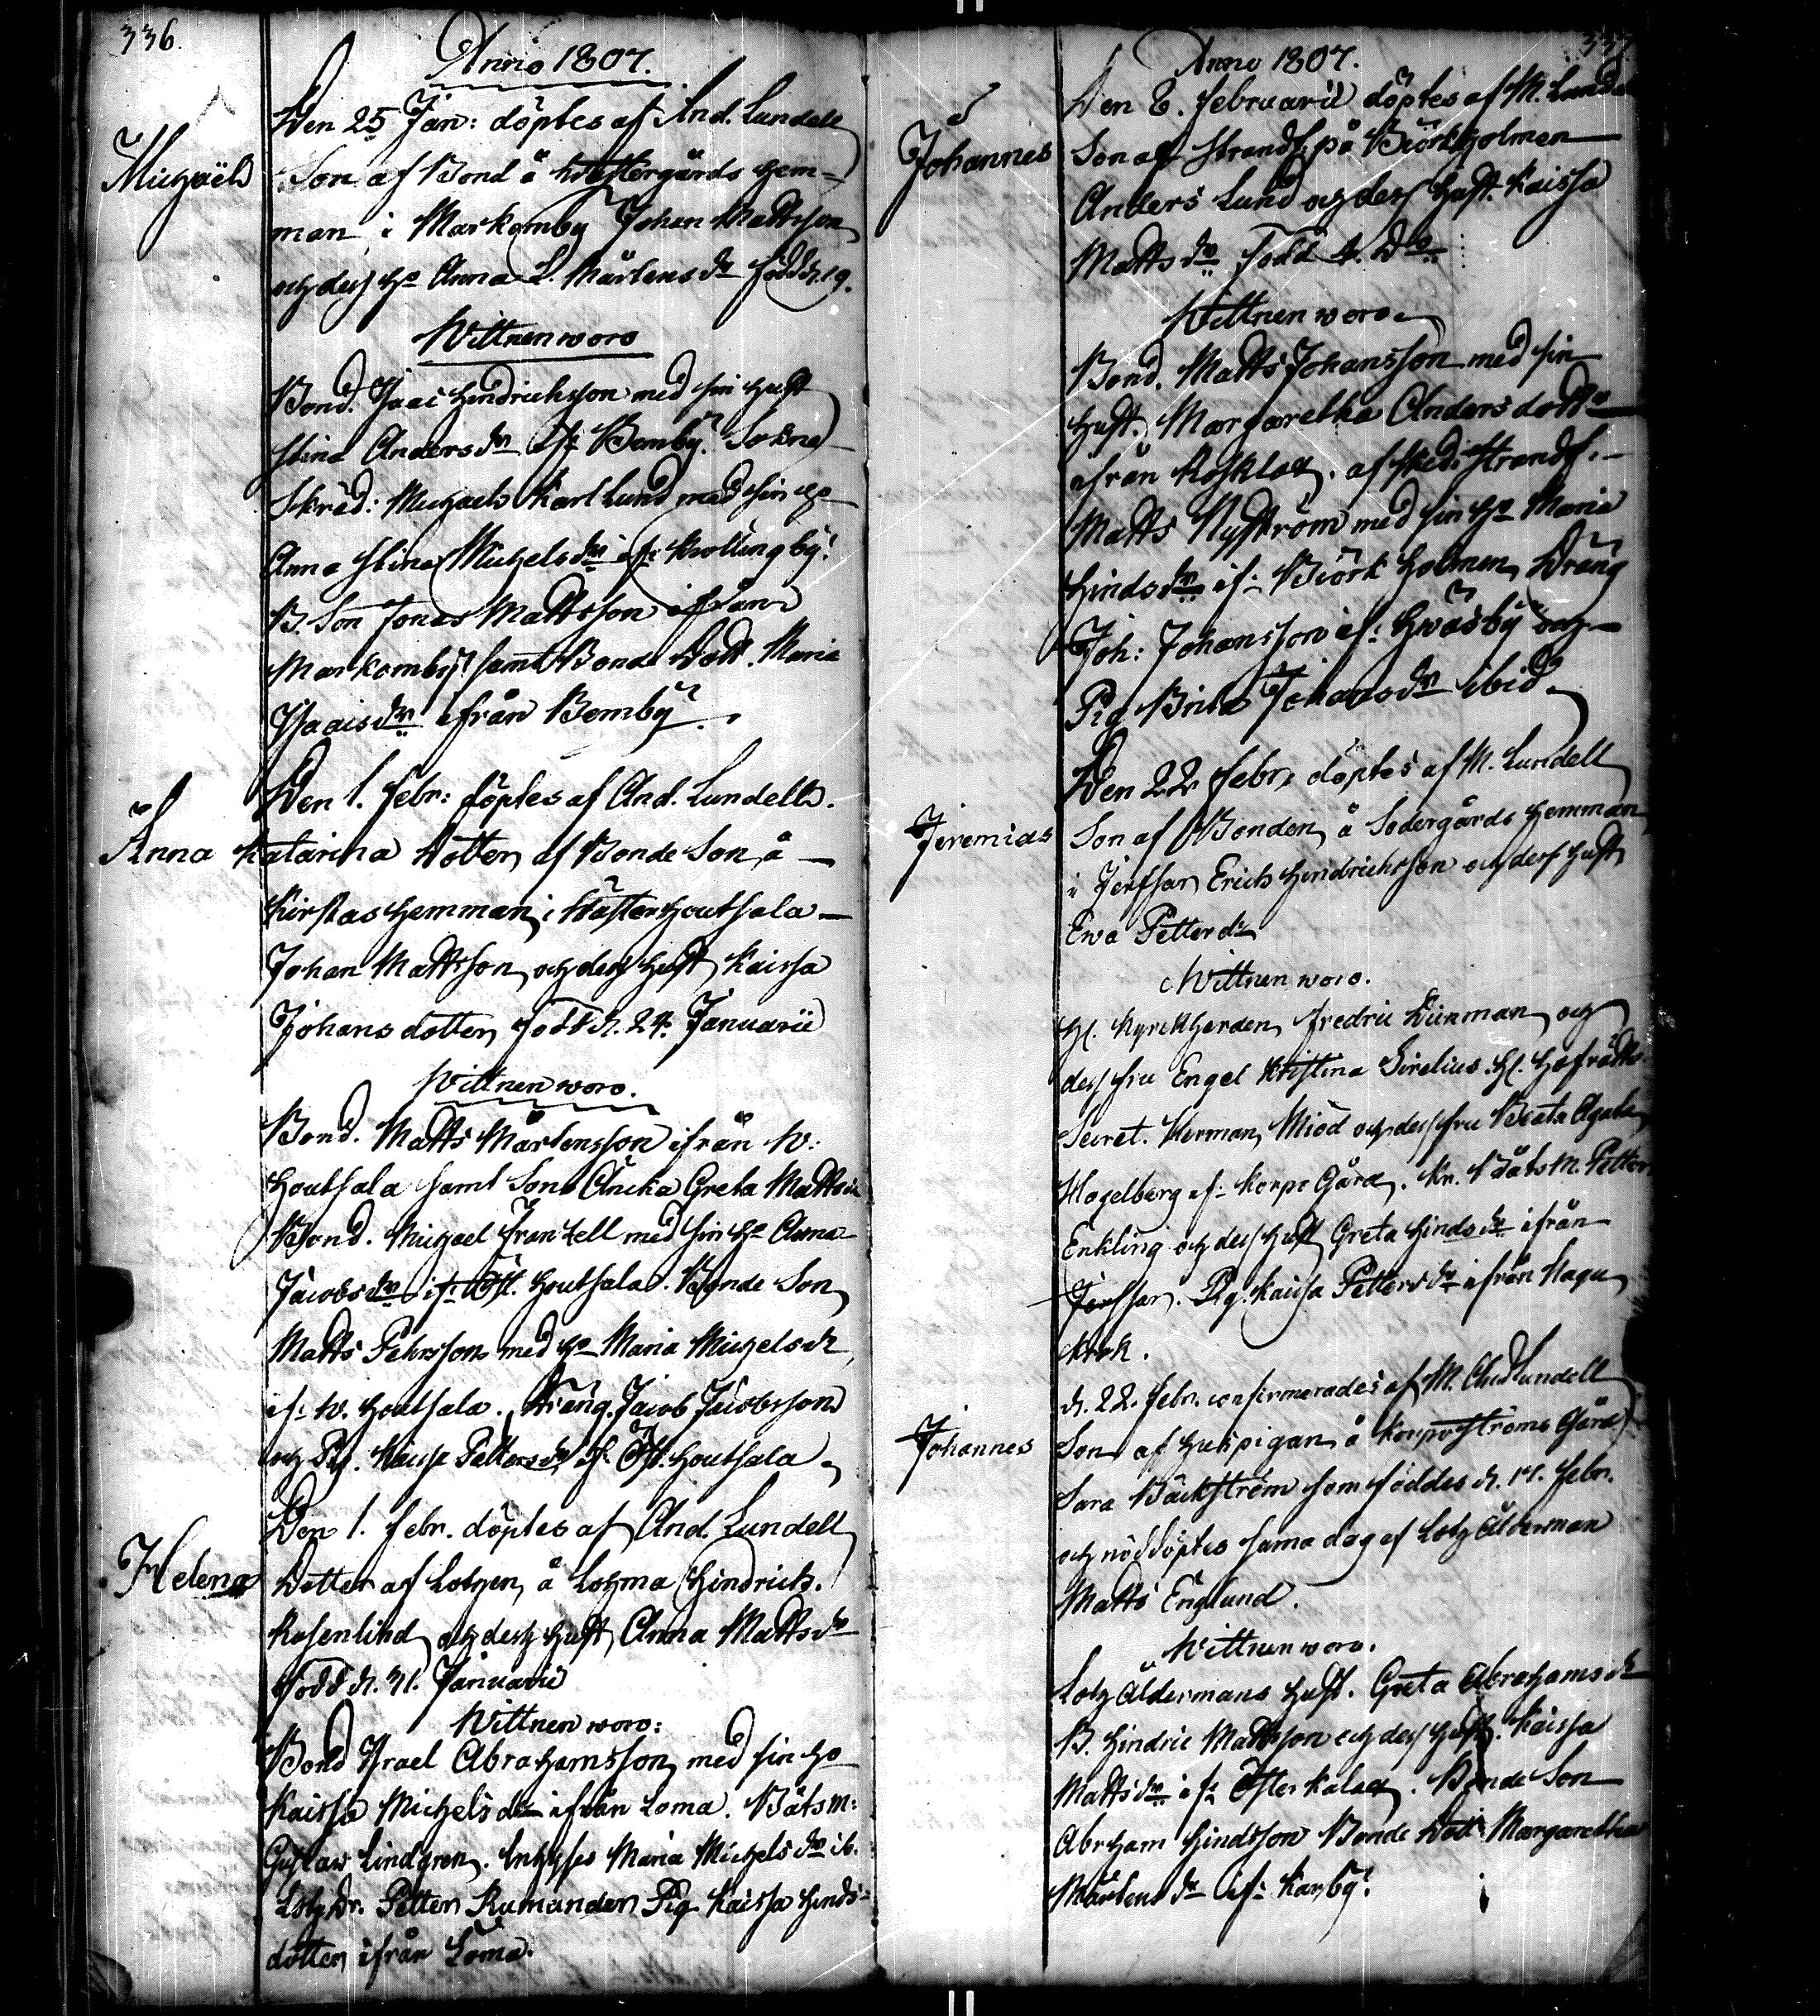 336.
Anno 1807.
Den 25 Jan: döptes af And. Lundell
Michaël Son af Bond å Westergårds hem=
man i Markomby Johan Mattsson
och dess ho Anna L. Mårtens dr född d. 19.
Wittnen woro
Bond. Isaac Hindrichsson med sin hust
Stina Anders dr ifr Bemby. Sokne
Skräd: Michaels Karl Lund med sin ho
Anna Stina Michels dr ifr Krollingby.
B. Son Jonas Mattsson ifrån
Markomby samt Bonde Dott. Maria
Isaacs dr ifrån Bemby.
Den 1. Febr: döptes af And. Lundell.
Anna Katarina dotter af Bonde Son å
Kirstas hemman i Wäster houtsala
Johan Mattsson och dess hust Kaissa
Johans dotter född d. 24. Januarii
Wittnen woro.
Bond. Matts Mårtensson ifrån W:
houtsala samt Sone Anika Greta Matts dr
Bond. Michael Frantzell med sin ho Anna
Jacobs dr ifr Öst. houtsala. Bonde Son
Matts Pehrsson med ho Maria Michels dr
ifr W. houtsala. Dräng. Jacob Jacobsson
och Pig. Kaisa Petters dr if. Öst. houtsala.
Den 1. Febr. döptes af And. Lundell
Helena Dotter af Lotzen å Lohma Hindrich.
Rosenlind och dess hust Anna Matts dr
född d. 31. Januarii
Wittnen woro:
Bond Israel Abrahamsson med sin ho
Kaissa Michels dr ifrån Loma. Båtsm:
Gustaw Lindgren. Maria Michels dr ib.
Lotz Dr. Petter Ramunder Pig Kaissa Hinds=
dotter ifrån Loma.
337
Anno 1807.
Den 8. Februarii döptes af M. Lundell
Johannes Son af Strandf. på Biörkholmen
Anders Lund och dess hust. Kaissa
Matts dr född 4. Dto
Wittnen woro
Bond. Matts Johansson med sin
hust. Margaretha Anders dotter
ifrån Rosklax. afsked. Strandf.
Matts Nyström med sin ho Maria
Hinds dr if: Biörk holmen, Dräng
Joh: Johansson if: Hwäsby och
Pig Brita Johans dr ibid.
Den 22 Febr: döptes af M. Lundell
Jeremias Son af Bonden å Södergårds hemman
i Jerfsar Erich Hendrichsson och dess hust
Ewa Petter dr
Wittnen woro.
H. Kyrckherden Fredric Dünman och
dess fru Engel Kristina Sirelius. H. Hofrätts
Secret. Herman Miöd och dess fru Beata Agata
Hogelberg if: Korpo Gård. Kn. Båtsm. Petter
Enkling och dess hust Greta Hinds dr ifrån
Jerfsar. Pig. Kaisa Petters dr ifrån Hagu
krok.
d. 22. Febr. confirmerades af M. And Lundell
Johannes Son af huspigan å Korpoströms Gård
Sara Bäckström som föddes d. 17. Febr.
och nöddöptes sama dag af Lotz Ålderman
Matts Englund.
Wittnen woro.
Lotz Åldermans hust. Greta Abrahams dr
B. Hindric Mattsson och dess hust. Kaissa
Matts dr if: Österkalax. Bonde Son
Abrham Hindsson Bonde Dott Margaretha
Mårtens dr if: Karby.